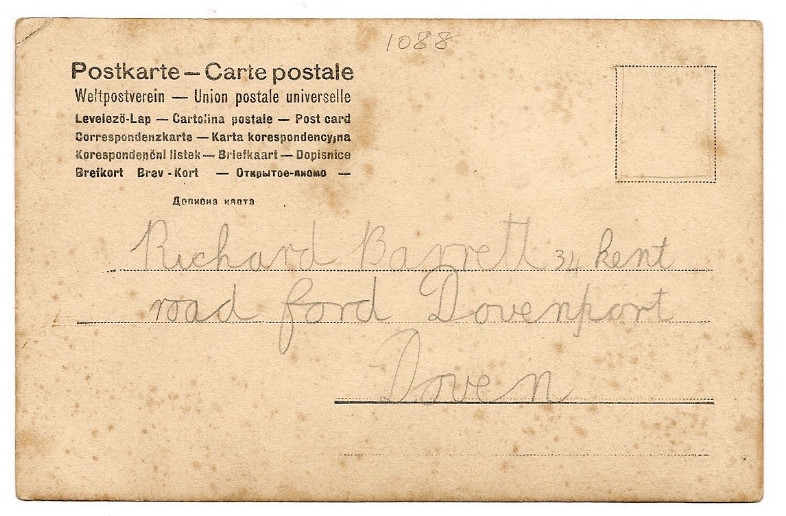 1088
Postkarte – Carte postale
Weltpostverein — Union postale universelle
Levelezö-Lap — Cartolina postale — Post card
Correspondenzkarte — Karta korespondencyjna
Korespondenční listek — Briefkaart — Dopisnice
Brefkort Brev-Kort — Открытое-письмо —
Дописна карта
Richard Barrett 34 kent
road ford Dovenport
Doven